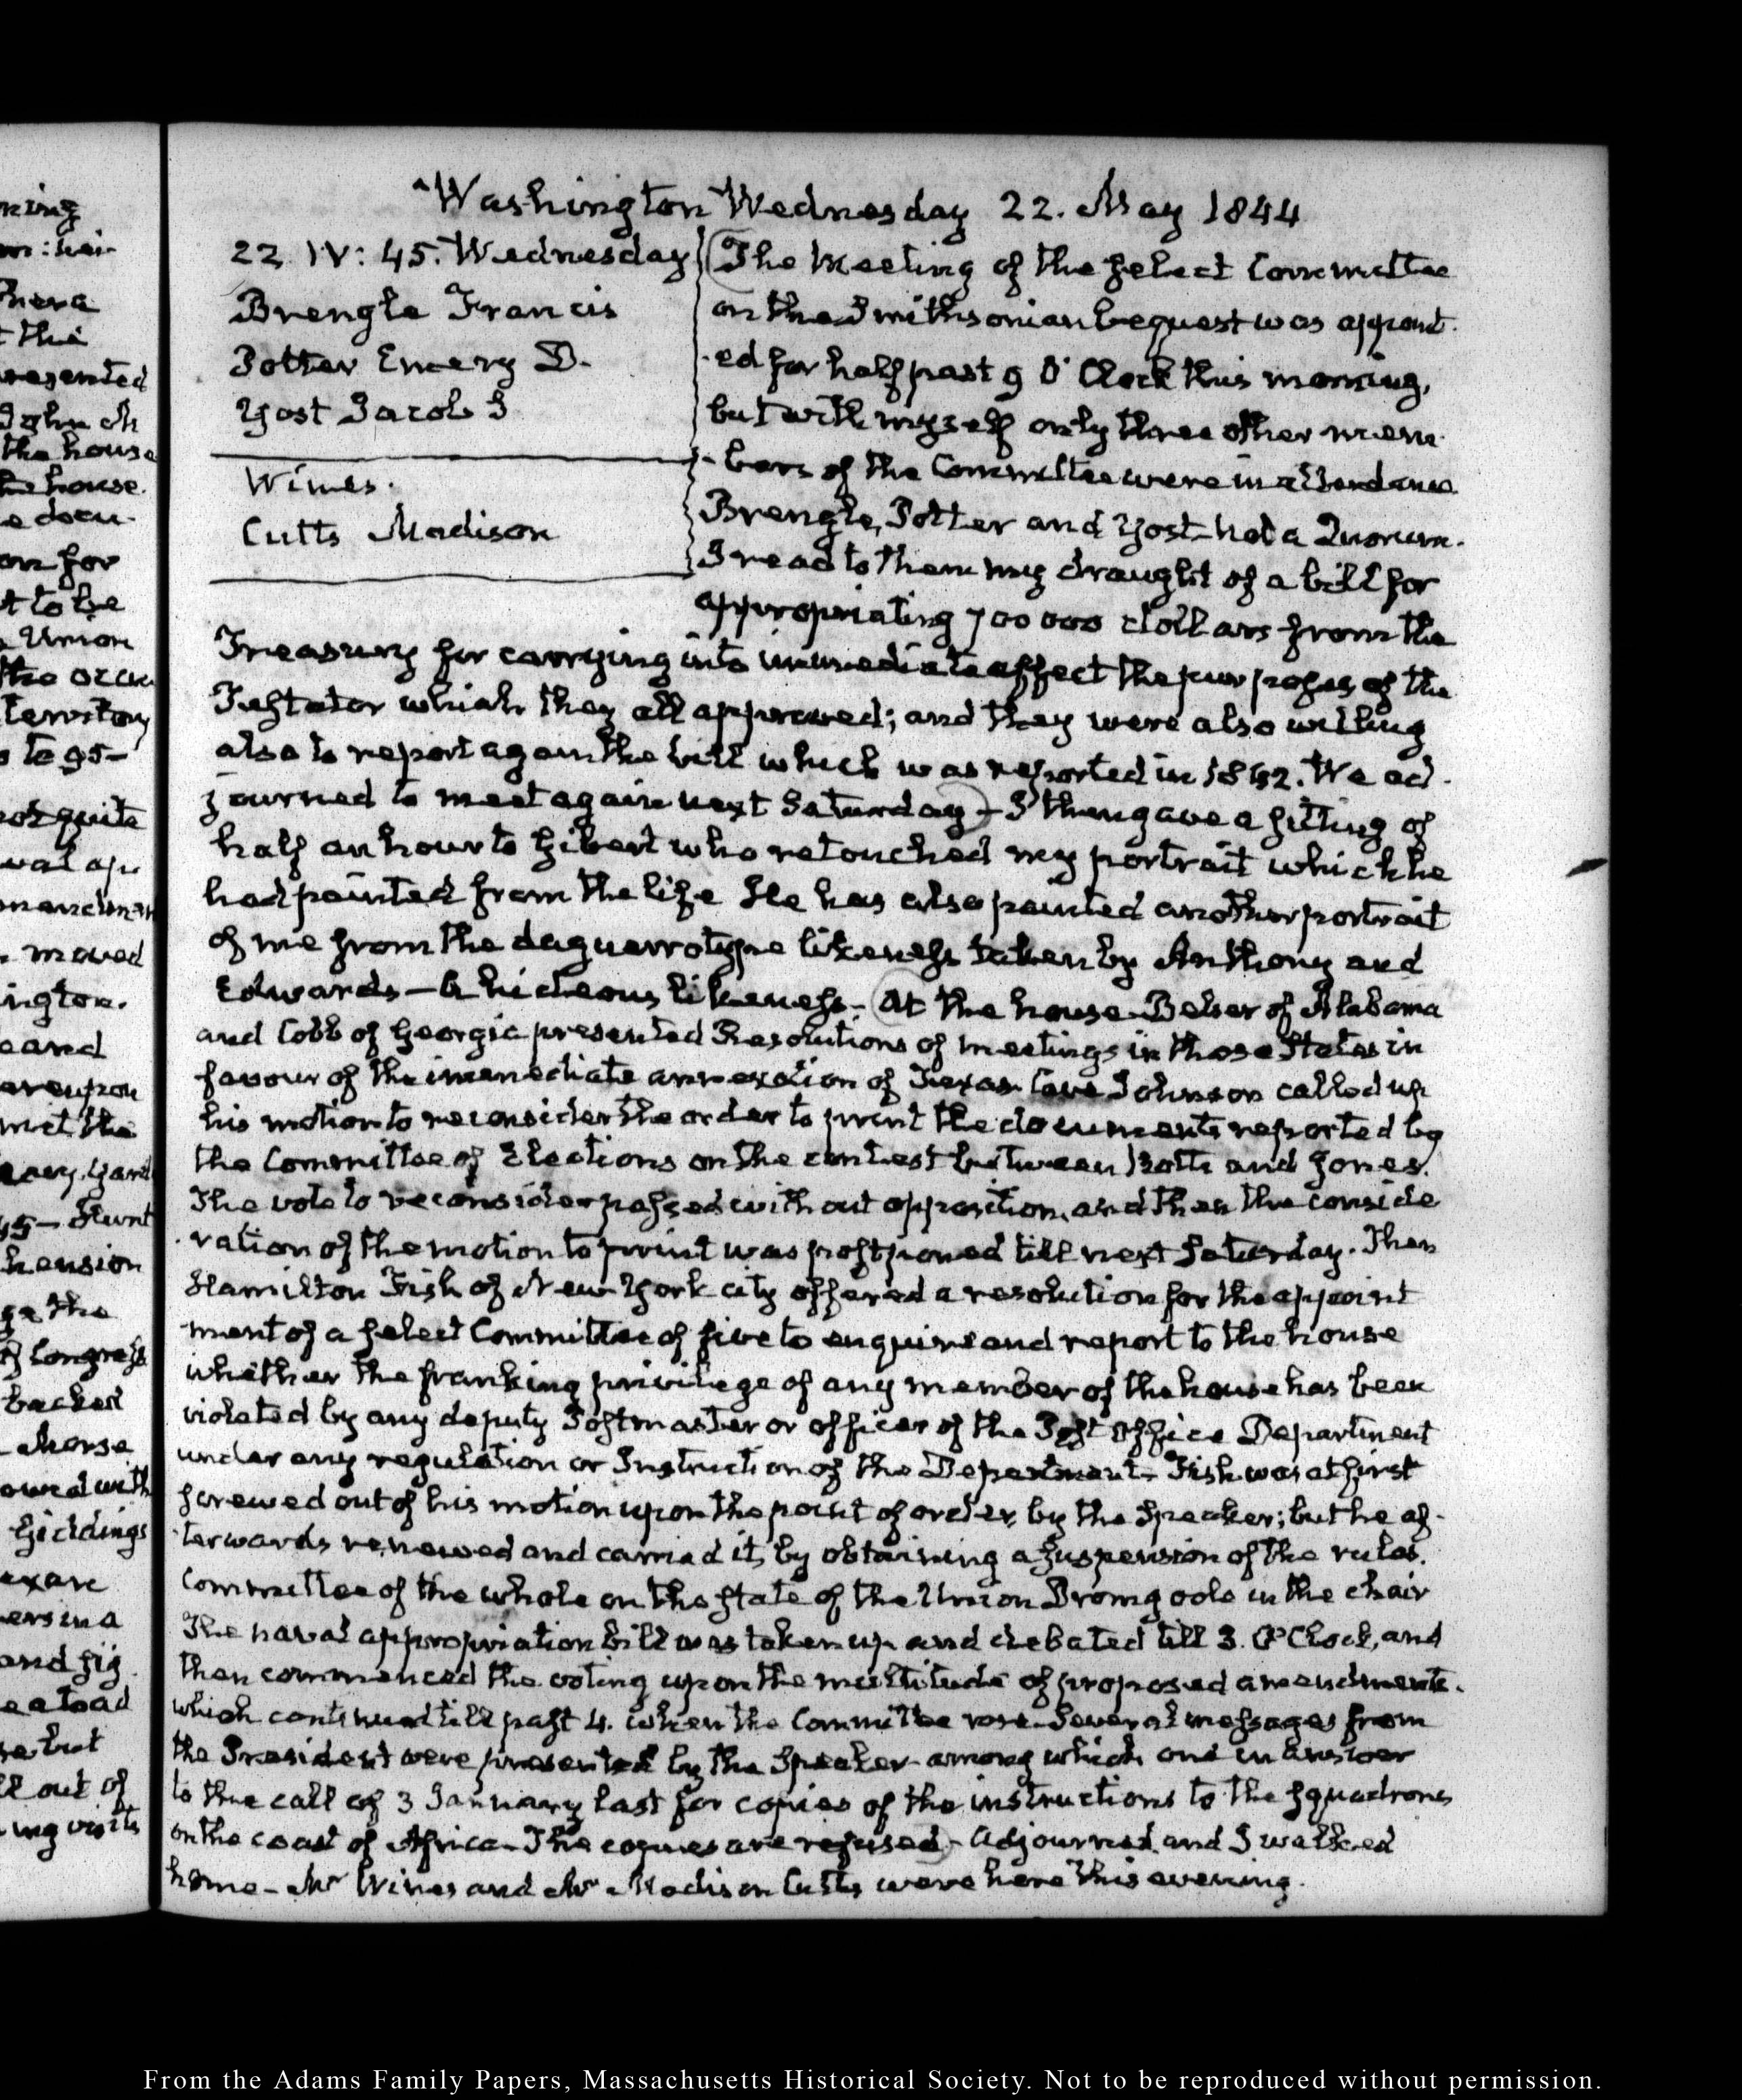 ning
m: hai
hera
t the
resented
John M
the house
the house.
e docu-
on for
t to be
Union
the occu
territory
s to 95-
not quite
val ap
. moved
ington.
e and
met the
45- Hunt
hension
ge the
of Congress
backed
- Morse
owed with
Giddings
exan
ers in a
and fig
se but
ll out of
ing visits
Washington Wednesday 22. May 1844
22. IV: 45. Wednesday
Brengle Francis
Potter Emery D.
Yost Jacob S
Wines.
Cutts Madison
The Meeting of the select Committee
on the Smithsonian bequest was appoint-
-ed for half past 9 O'Clock this morning,
but with myself only three other mem-
-bers of the Committee were in attendance
Brengle, Potter and Yost- not a Quorum.
I read to them my draught of a bill for
appropriating 700 000 dollars from the
Treasury for carrying into immediate effect the purposes of the
Testator which they all approved; and they were also willing
also to report again the bill which was reported in 1842. We ad-
journed to meet again next Saturday - I then gave a sitting of
half an hour to Gibert who retouched my portrait which he
had painted from the life He has also painted another portrait
of me from the daguerrotype likeness taken by Anthony and
Edwards — A hideous likeness. At the house- Belser of Alabama
and Cobb of Georgia presented Resolutions of meetings in those States in
favour of the immediate annexation of Texas. Cave Johnson called up
his motion to reconsider the order to print the documents reported by
the Committee of Elections on the contest between Botts and Jones.
The vote to reconsider passed without opposition, and then the conside
-ration of the motion to print was postponed till next Saturday. Then
Hamilton Fish of New-York city offered a resolution for the appoint
-ment of a select Committee of five to enquire and report to the house
whether the franking privilege of any member of the house has been
violated by any deputy Postmaster or officer of the Post Office Department
under any regulation or Instruction of the Department- Fish was at first
screwed out of his motion upon the point of order, by the Speaker; but he af-
-terwards renewed and carried it, by obtaining a suspension of the rules.
Committee of the whole on the state of the Union Dromgoole in the chair
The naval appropriation bill was taken up and debated till 3. O'Clock, and
then commenced the voting upon the multitude of proposed amendments.
which continued till past 4. when the Committee rose- Several messages from
the President were presented by the Speaker- among which one in answer
to the call of 3 January last for copies of the instructions to the squadrons
on the coast of Africa- The copies are refused- Adjourned, and I walked
home- Mr Wines and Mr Madison Cutts were here this evening.
From the Adams Family Papers, Massachusetts Historical Society. Not to be reproduced without permission.